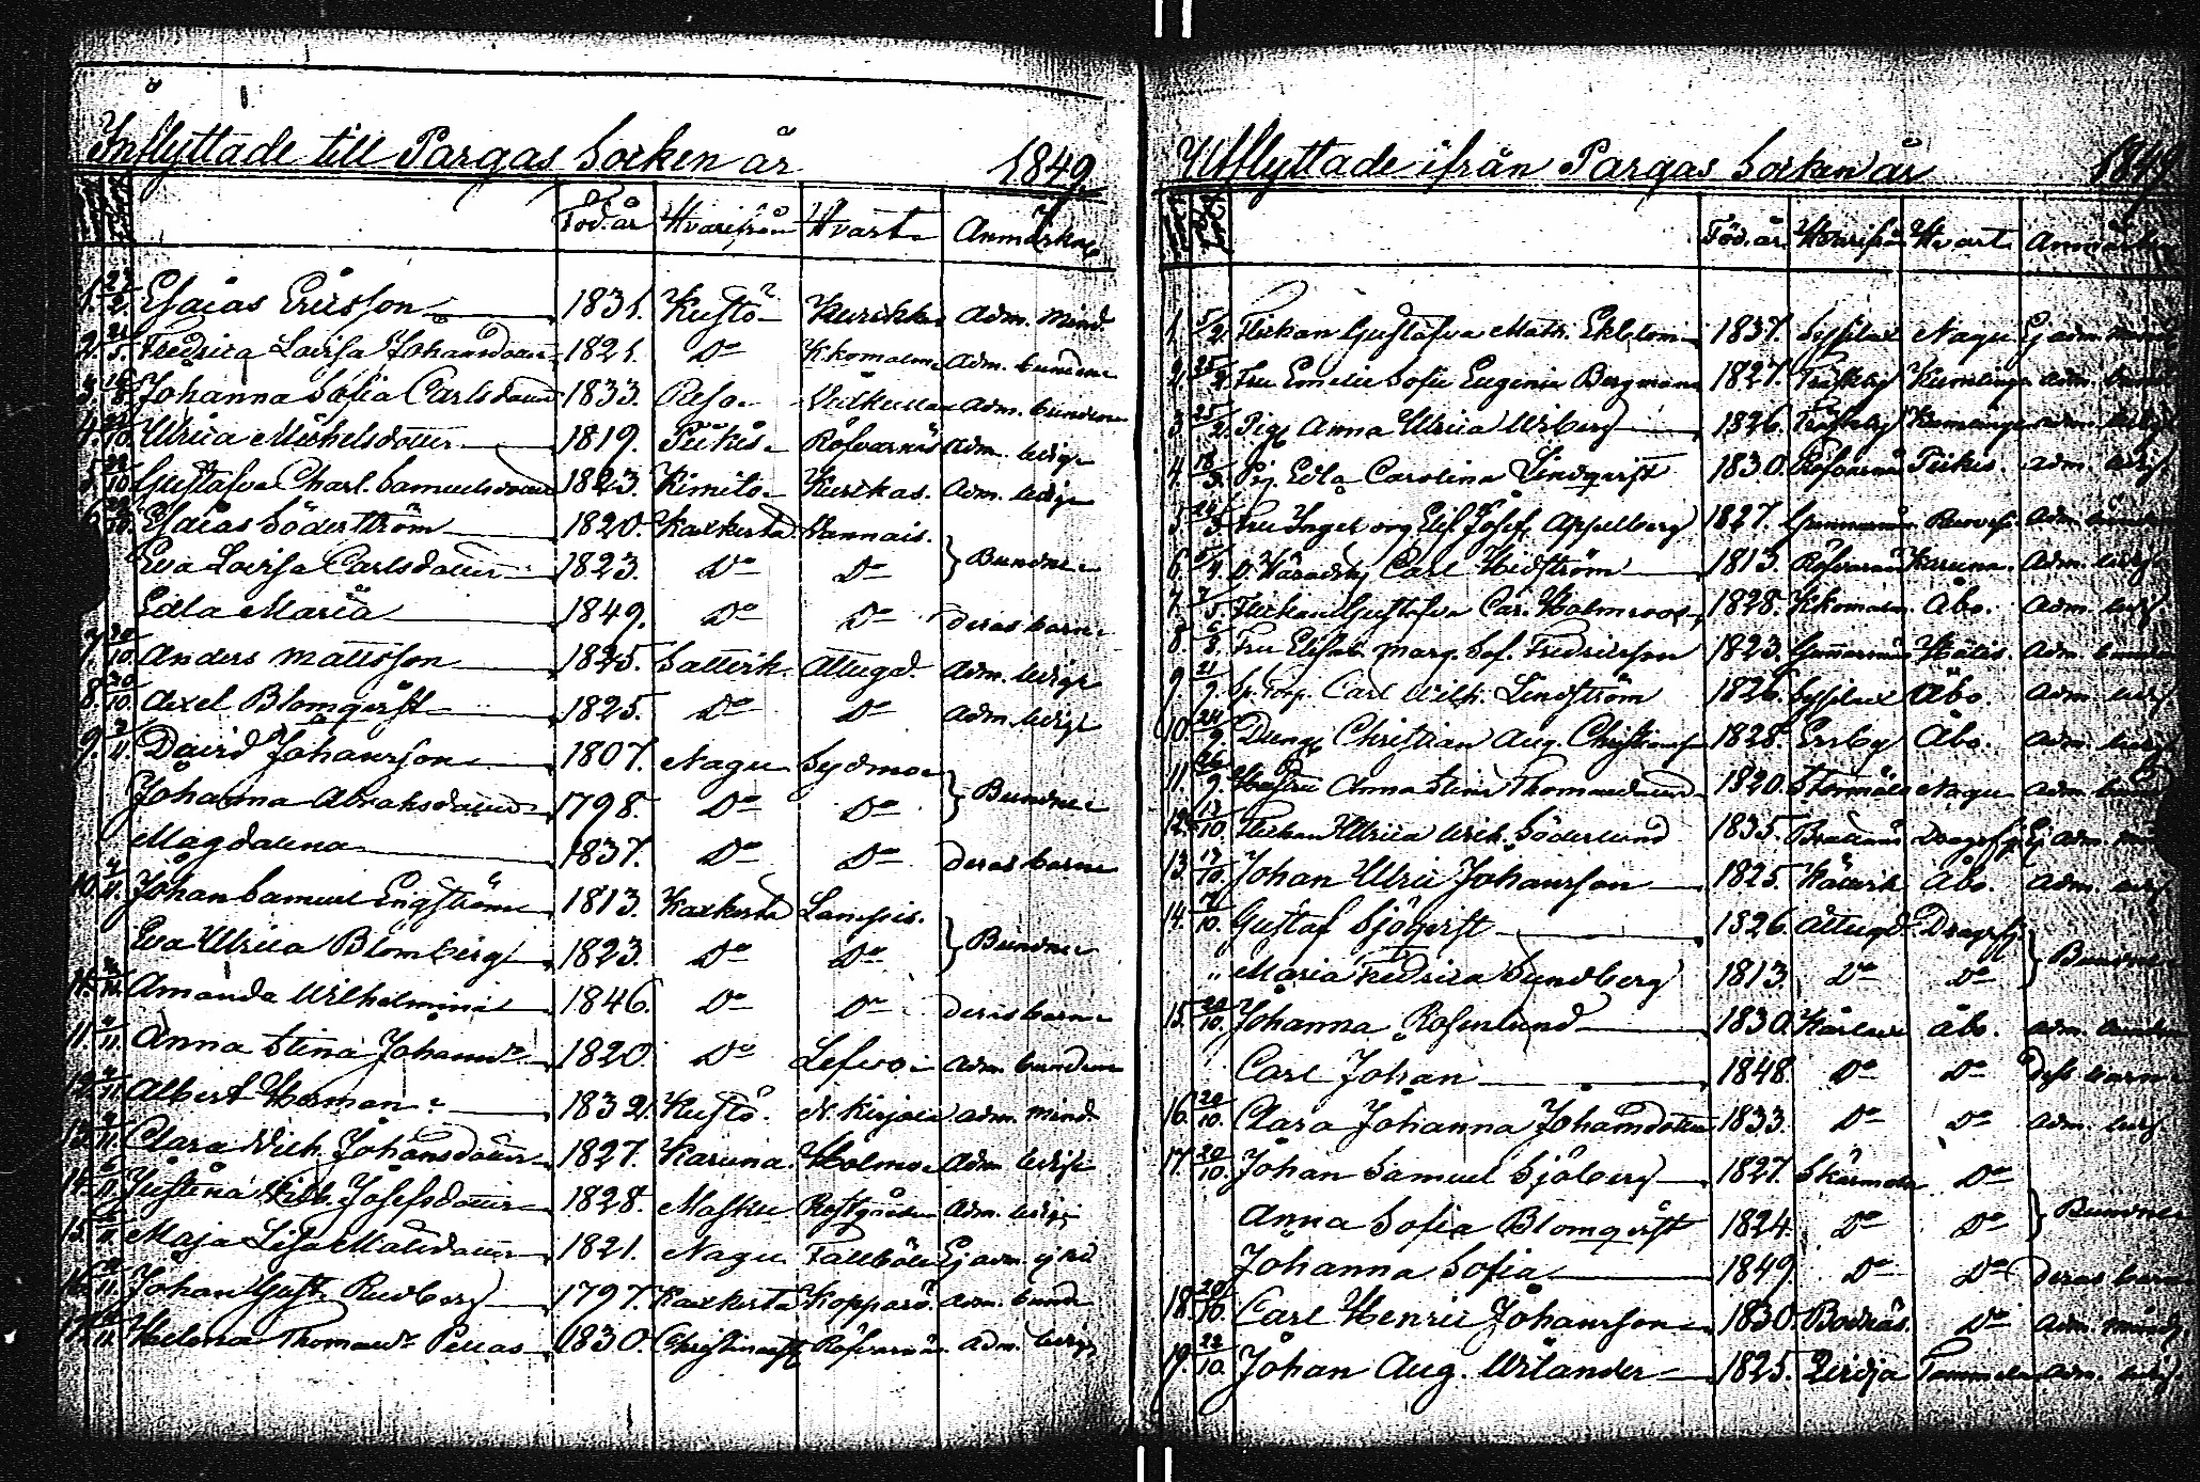 Inflyttade till Pargas Socken år 1849.
Föd. år Hvarifrån Hvart Anmärkng
1. 27/2. Esaias Ericsson 1831. Kustö Kurikka Adm. Mind.
2. Fredrica Lovisa Johansdotter 1821. Do Kkomalm Adm. bunden
3. Johanna Sofia Carlsdotter 1833. Reso Adm. bunden
4. Ulrica Michelsdotter 1819. Pikis Röfvarnäs Adm. ledige
5. Gustafva Charl. Samuelsdotter 1823. Kimito Kurikas. Adm. ledige
6. Esaias Söderström 1820. Kaxkerta Hannais.
Eva Lovisa Carlsdotter 1823. Do Do } Bundne
Edla Maria 1849. Do Do deras barn
7. 30/10. Anders Mattsson 1825. Sattvik. Attugd. Adm. ledige
8. 30/10. Axel Blomqvist 1825. Do Do Adm. ledige
9. David Johansson 1807. Nagu Sydmo
Johanna Abrahsdotter 1798. Do Do } Bundne
Magdalena 1837. Do Do deras barn
10. Johan Samuel Engström 1813. Kaxkerta Lampis.
Eva Ulrica Blomberg 1823. Do Do } Bundne
Amanda Wilhelmina 1846. Do Do deras barn
11. Anna Stina Johansdr 1820. Do Lefvo Adm. bunden
12. Albert Herman 1832. Kustö. N. Kirjala Adm. Mind.
13. Clara Wilh. Johansdotter 1827. Karuna. Holmo Adm. ledige
14. Justina Wilh. Josefsdotter 1828. Masku Adm. ledig
15. Maja Lisa Matsdotter 1821. Nagu Fallböle Ej adm.
16. Johan Gust. Rudberg 1797. Kaxkerta Kopparö. Adm. bund
17. Helena Thomasdr Penas 1830. Röfvarnäs. Adm. ledig
Utflyttade ifrån Pargas Socken år 1849
Föd. år Hvarifrån Hvart Anmärkn
1. 5/2. Flickan Gustafva Math. Ekblom 1837. Sysilax Nagu Ej adm.
2. 25/2. Fru Emelie Sofie Eugenia Bergman 1827. Kumlinge Adm. bund
3. 25/2. Pig. Anna Ulrica Wiberg 1826. Kumlinge Adm. ledig
4. 18/3. Pig. Edla Carolina Lindqvist 1830. Röfvarnäs Pikis. Adm. ledig
5. Fru Inget org Elis. Josef. Appelberg 1827. Gunnarnäs Adm. bunden
6. Carl Hedström 1813. Röfvarnäs Karuna. Adm. ledig
7. Flickan Gustafva Car. Holmroos 1828. Kkomalm. Åbo. Adm. ledig
8. Fru Elisab. Marg. Sof. Fredricsson 1823. Gunnarnäs Adm. bunden
9. 21/9. Carl Wilh. Lindström 1826. Sysilax Åbo. Adm. ledig
10. 24/9. Dreng. Christian Aug. Christianss 1828. Ersby Åbo. Adm. ledig
11. 26/9. Hustru Anna Stina Thomasdotter 1820. Stormälö Nagu Adm. bund
12. 13/10. Flickan Ulrica Wilh. Söderlund 1835. Dragsfj. Ej adm.
13. 17/10. Johan Ulric Johansson 1825. Åbo. Adm. ledig
14. Gustaf Sjöqvist 1826. Attugd Dragsfj.
" Maria Fredrica Sundberg 1813. Do Do } Bundne
15. 20/10. Johanna Rosenlund 1830. Kårlax Åbo. Adm. bunden
Carl Johan 1848. Do Do dess barn
16. 20/10. Clara Johanna Johansdotter 1833. Do Do Adm. ledig
17. 20/10. Johan Samuel Sjöberg 1827. Skärmola Do
Anna Sofia Blomqvist 1824. Do Do } Bundne
Johanna Sofia 1849. Do Do deras barn
18. 20/10. Carl Henric Johansson 1830. Bodnäs. Do Adm.
19. 22/10. Johan Aug. Wilander 1825. Qvidja Tammela Adm. ledig.